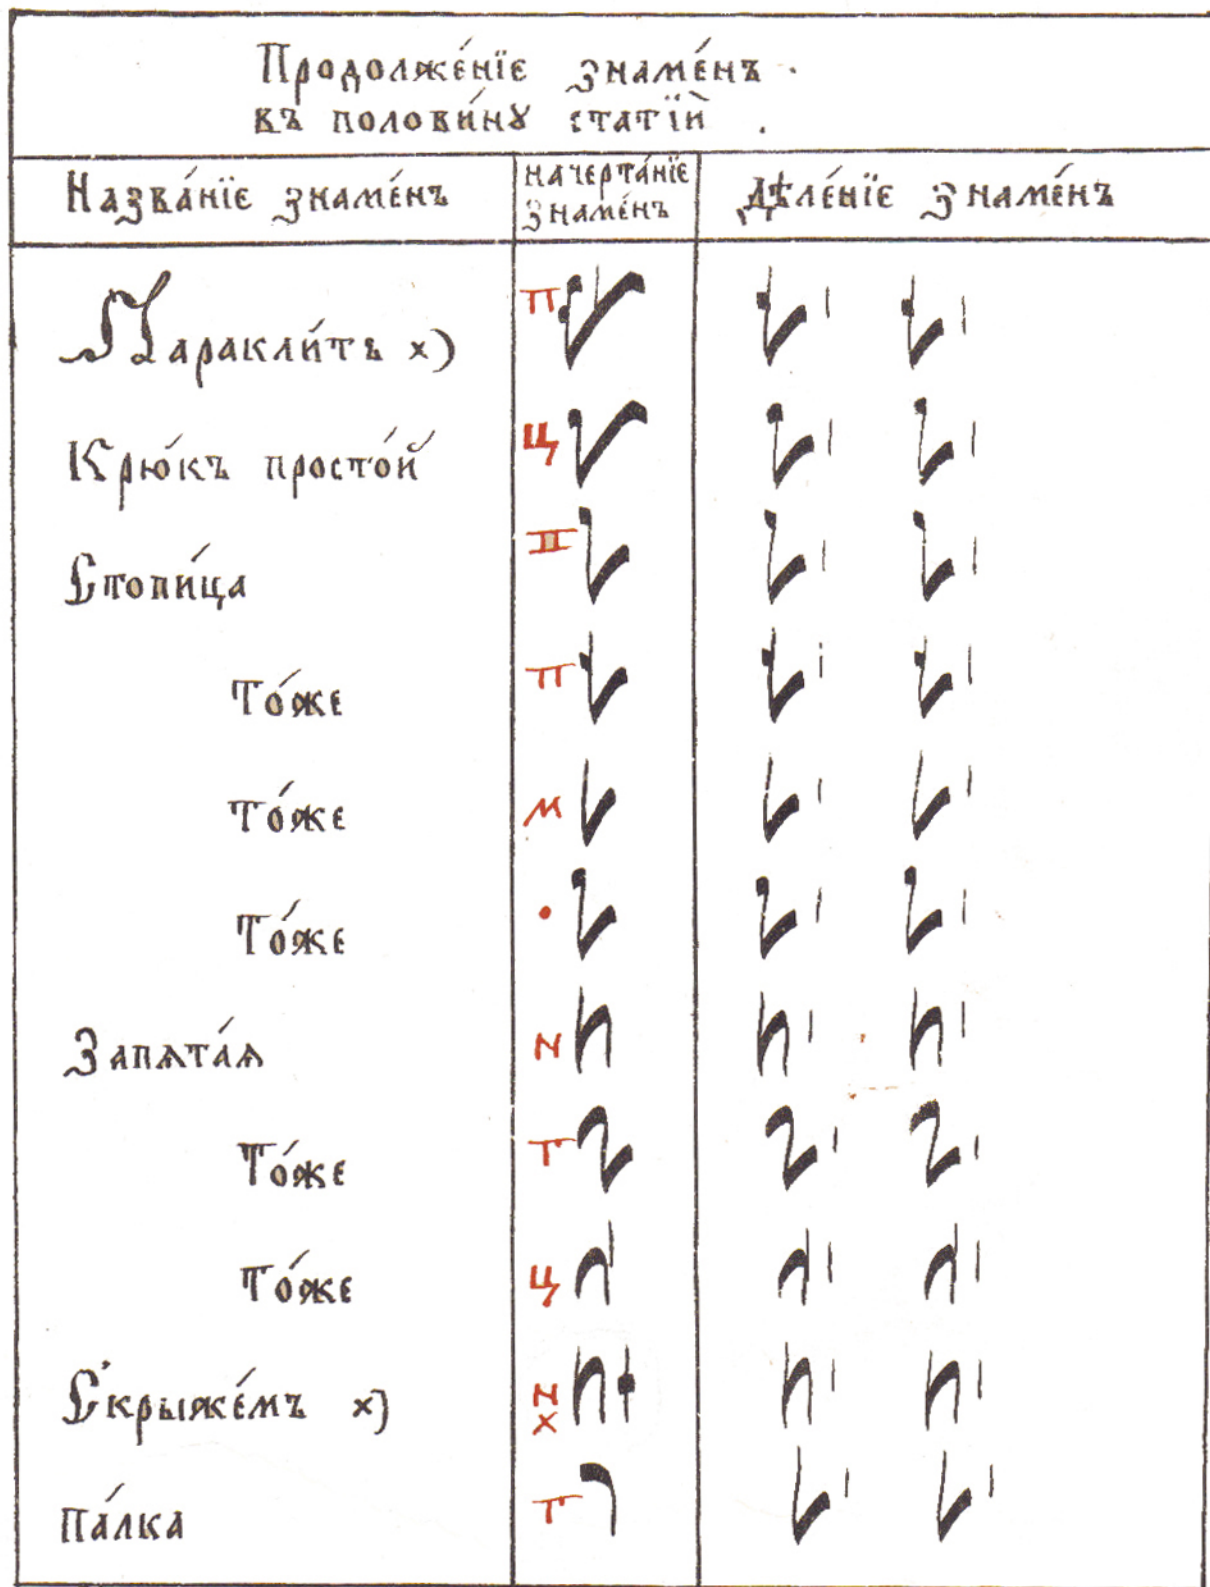 Продолже́нїе знаме́нъ.
въ полови́нꙋ статїй.
Назва́нїе знаме́нъ
начерта́нїе
знаме́нъ
дѣле́нїе знаме́нъ
Паракли́тъ х)
п
Крю́къ просто́й
ц
Стопи́ца
То́же
п
То́же
м
То́же
Запѧта́ѧ
н
То́же
г
То́же
ц
С̾крыже́мъ х)
н
х
па́лка
г